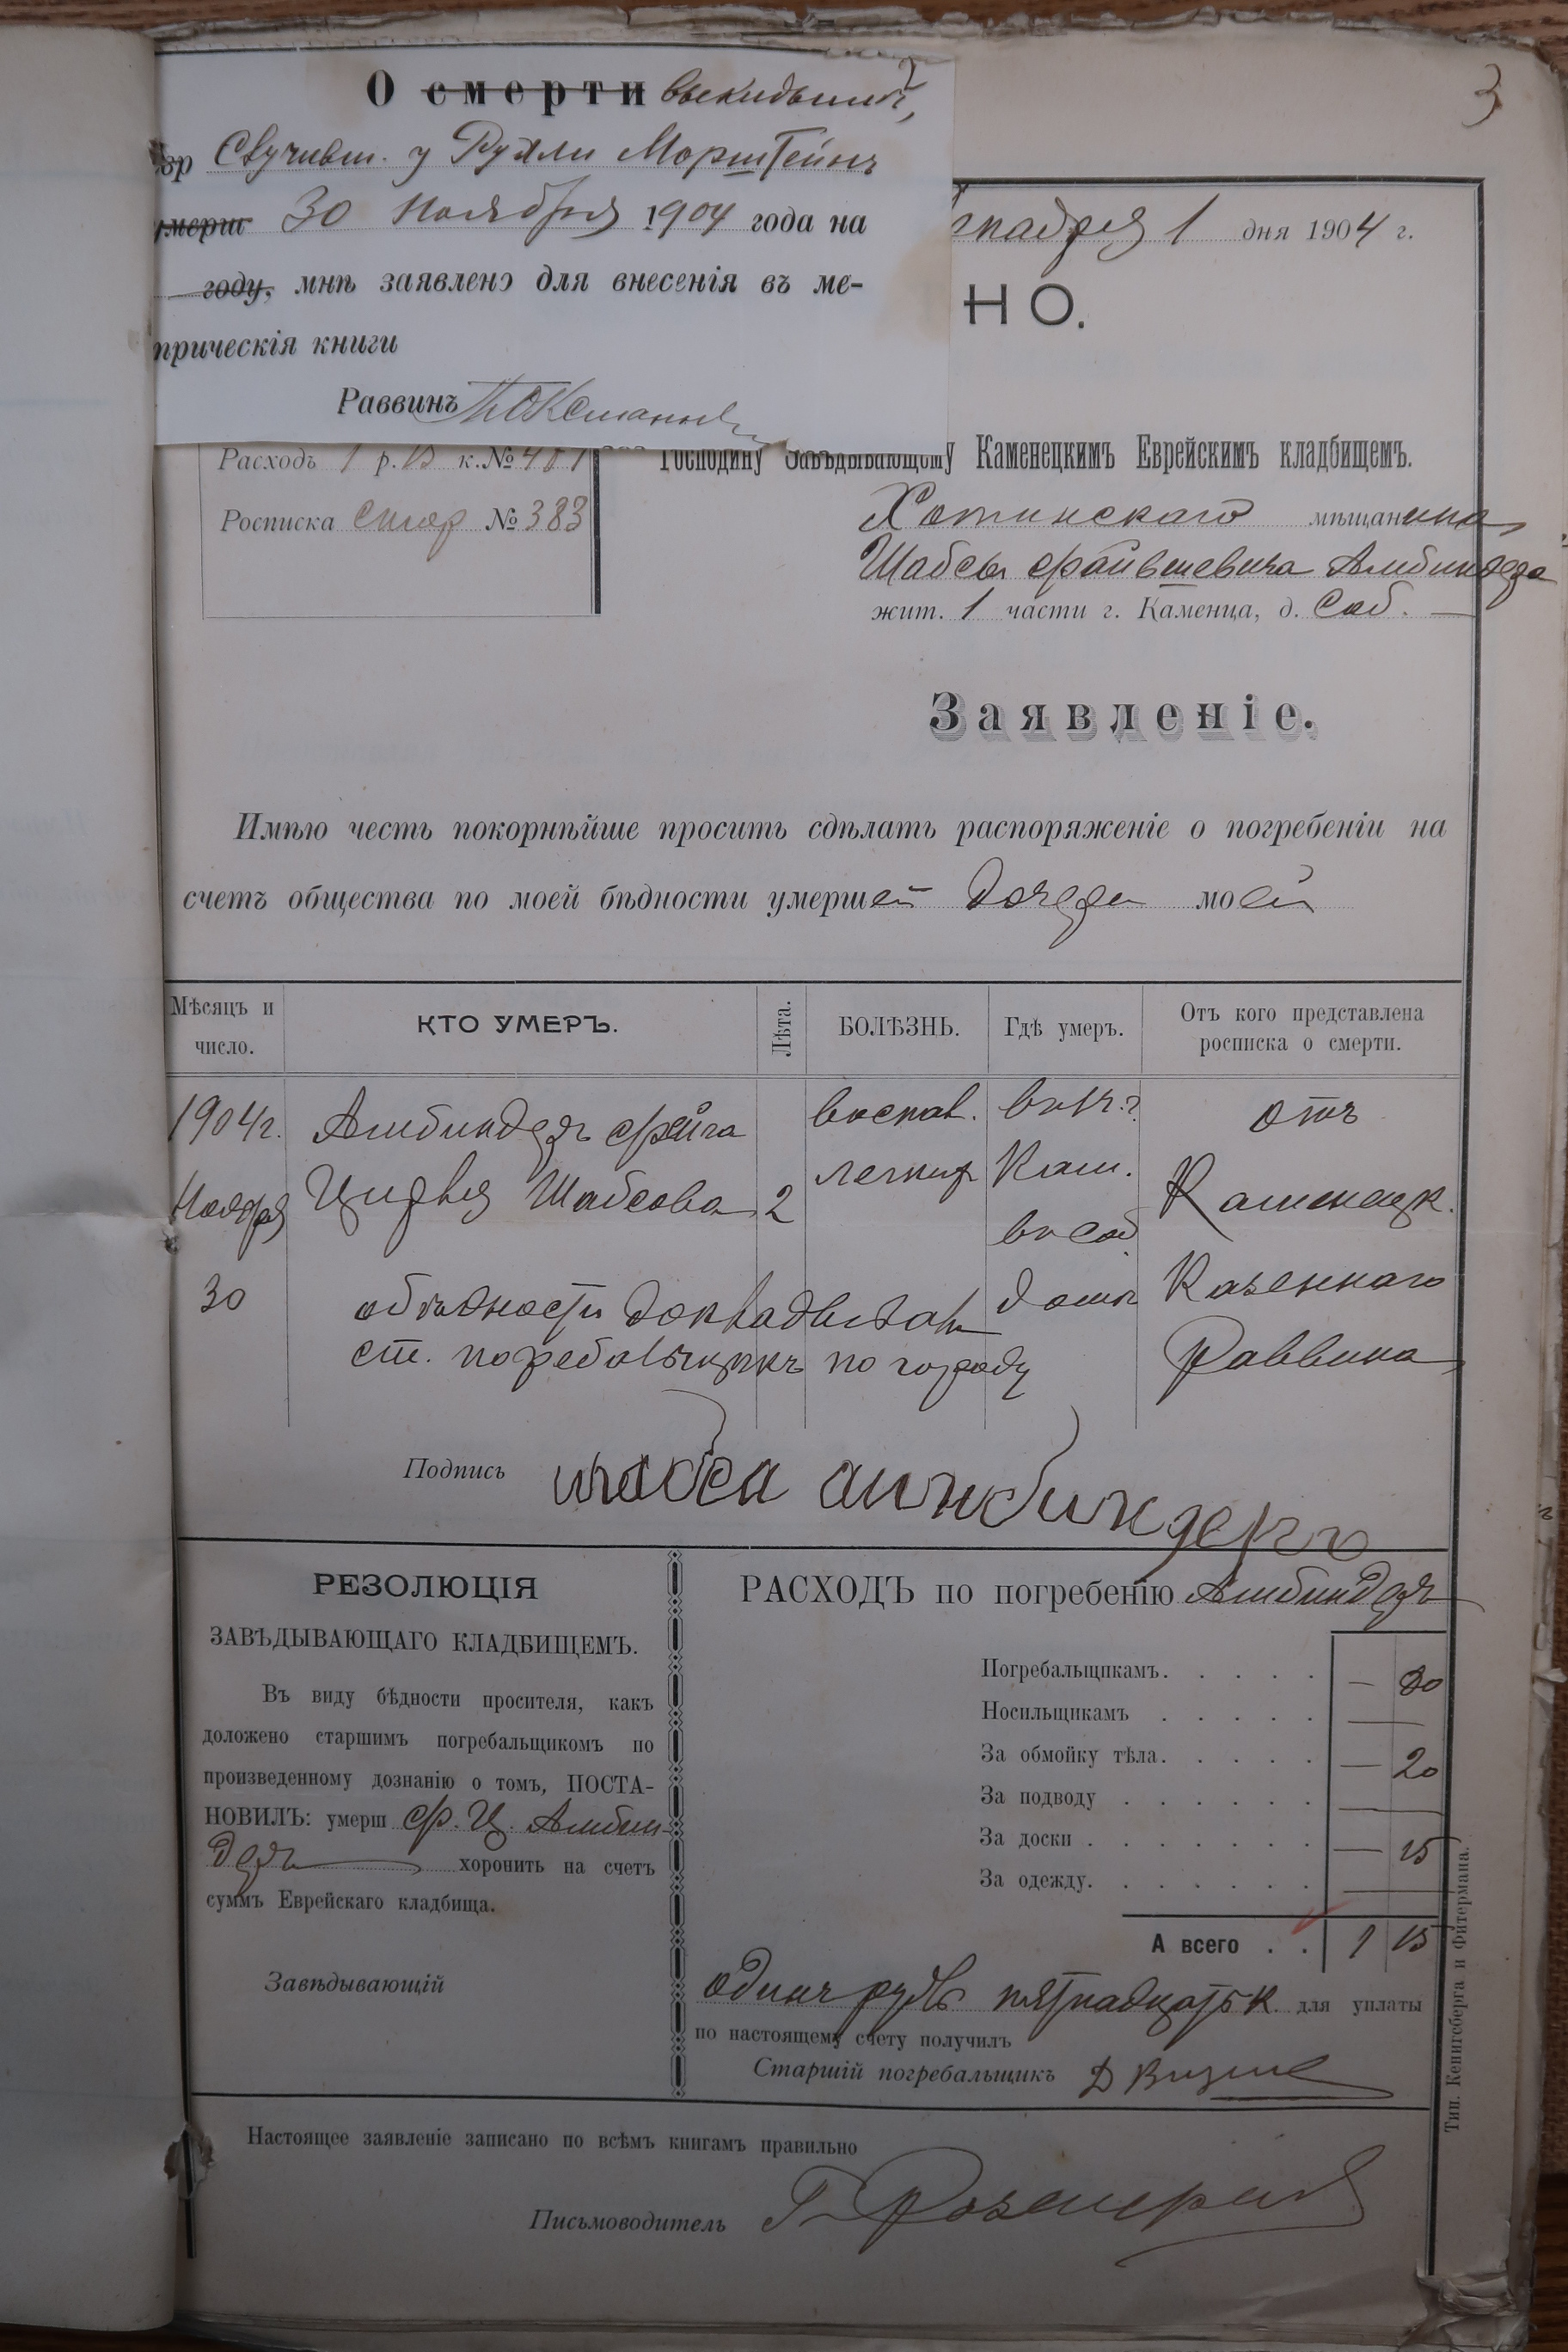 3
О смерти выкидыше,
Случивш. у Рухли Морштейнъ
умерш 30 Ноября 1904 года на
году, мнѣ заявлено для внесенія въ ме-
трическія книги
Раввинъ
1 дня 1904 г.
НО.
Расходъ 1 р. 15 к. №
Росписка № 383
Господину Завѣдывающему Каменецкимъ Еврейскимъ кладбищемъ.
Хотинскаго мѣщанина
Шабсы Файвишевича Амбиндера
жит. 1 части г. Каменца, д. Соб.
Заявленіе.
Имѣю честь покорнѣйше просить сдѣлать распоряженіе о погребеніи на
счетъ общества по моей бѣдности умершей дочери моей
Мѣсяцъ и число.
КТО УМЕРЪ.
Лѣта.
БОЛѢЗНЬ.
Гдѣ умеръ.
Отъ кого представлена росписка о смерти.
1904г. Амбиндеръ Фейга воспал. въ г. отъ
Ноября Шабсова 2 легких Кам. Каменецк.
въ соб.
30 о бѣдности докладывалъ домѣ Казеннаго
ст. погребальщикъ по городу Раввина
Подпись шабса
РЕЗОЛЮЦІЯ
ЗАВѢДЫВАЮЩАГО КЛАДБИЩЕМЪ.
Въ виду бѣдности просителя, какъ
доложено старшимъ погребальщикомъ по
произведенному дознанію о томъ, ПОСТА-
НОВИЛЪ: умерш Ф. Ц. Амбин-
деръ хоронить на счетъ
суммъ Еврейскаго кладбища.
Завѣдывающій
РАСХОДЪ по погребенію Амбиндеръ
Погребальщикамъ. . . . . — 80
Носильщикамъ . . . . . —
За обмойку тѣла. . . . . — 20
За подводу . . . . . . —
За доски . . . . . . . — 15
За одежду. . . . . . . —
А всего . . 1 15
одинъ рубль пятнадцать к. для уплаты
по настоящему счету получилъ
Старшій погребальщикъ Д
Настоящее заявленіе записано по всѣмъ книгамъ правильно
Письмоводитель
Тип. Кенигсберга и Фитермана.